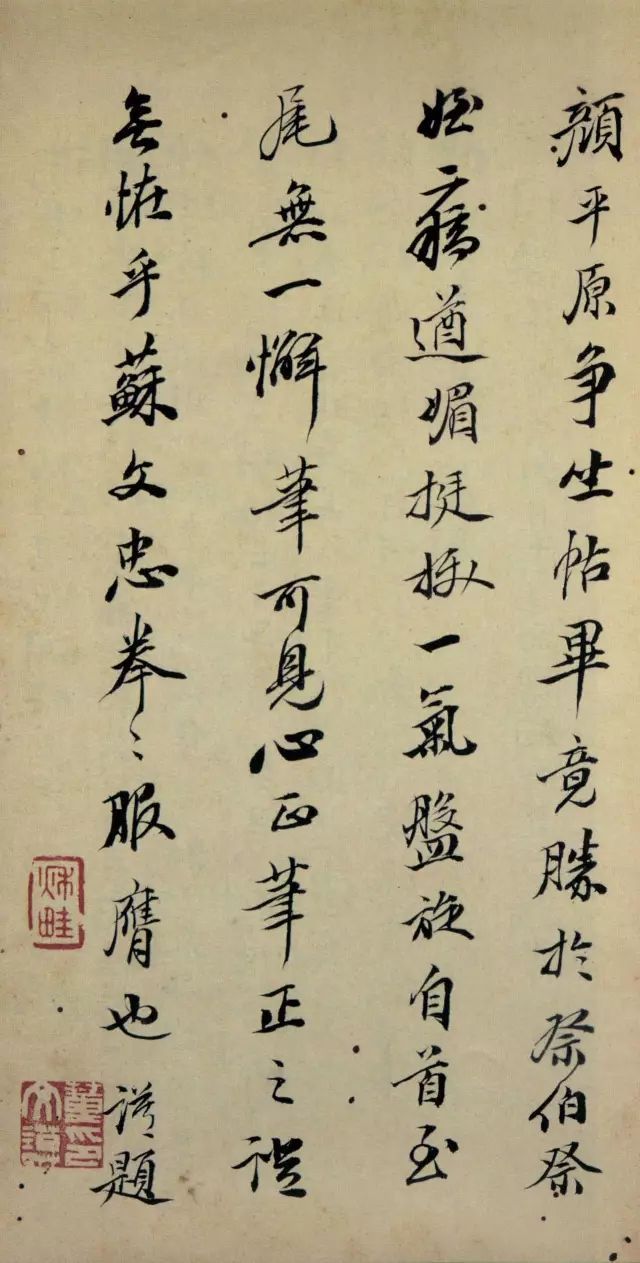 顔平原争坐帖畢竟勝於祭伯祭
姪二藁遒媚挺拔一氣盤旋自首至
尾無一懈筆可見心正筆正之
無怪乎蘇文忠拳〻服膺也 題